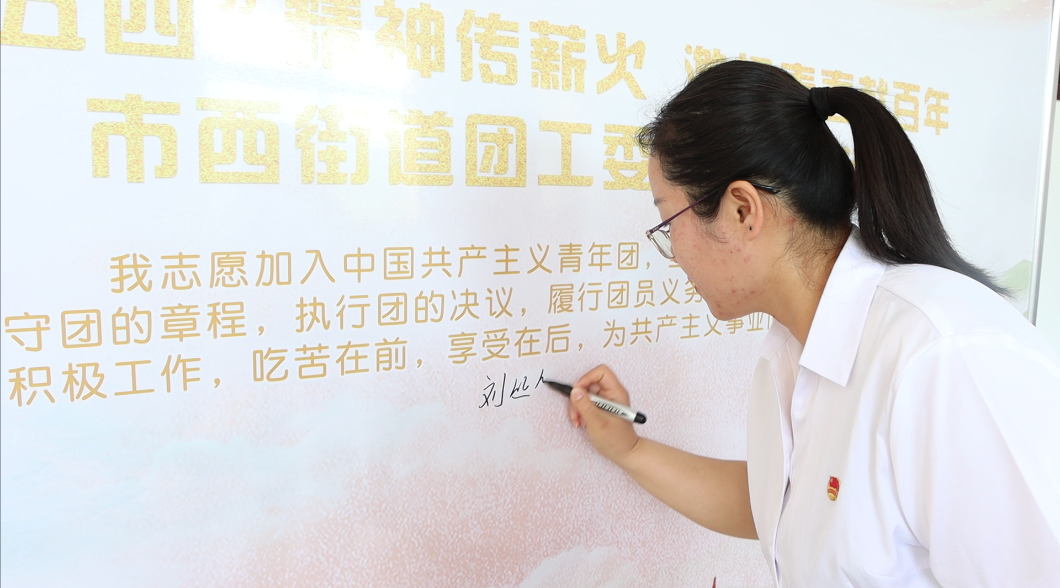 五四”精神传薪火 百年
市西街道团工委
我志愿加入中国共产主义青年团，
守团的章程，执行团的决议，履行团员义务
积极工作，吃苦在前，享受在后，为共产主义事业
刘